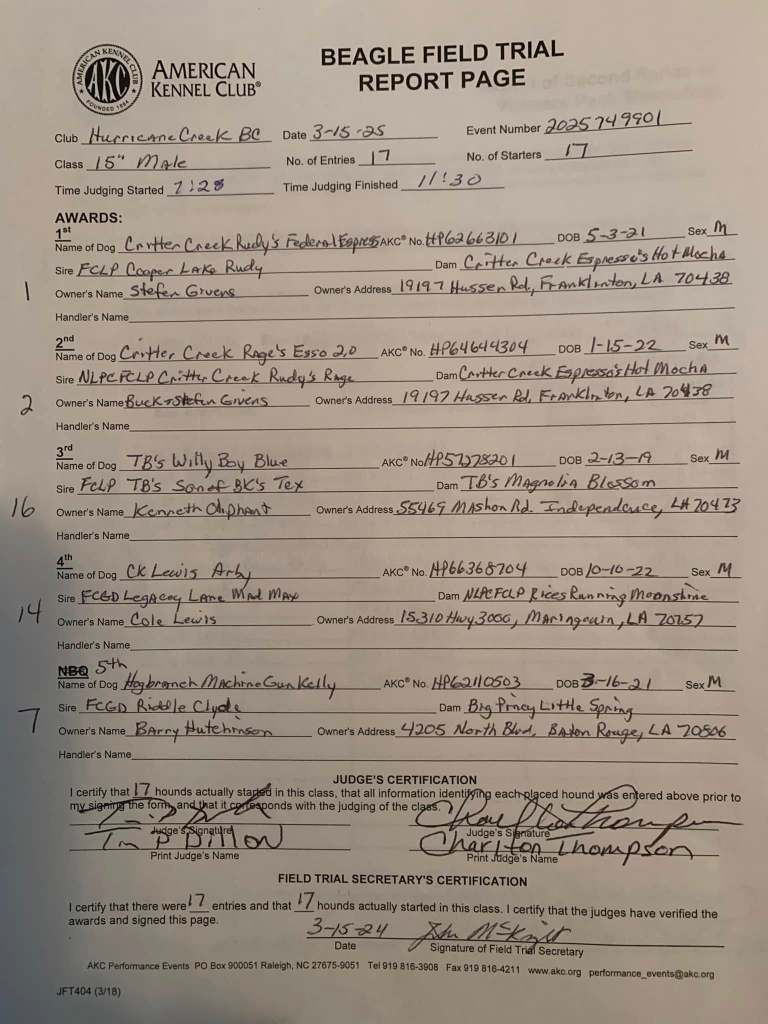 AMERICAN KENNEL CLUB
AKC
FOUNDED 1884
AMERICAN
KENNEL CLUB®
BEAGLE FIELD TRIAL
REPORT PAGE
Club Hurricane Creek BC Date 3-15-25 Event Number 2025749901
Class 15" Male No. of Entries 17 No. of Starters 17
Time Judging Started 7:28 Time Judging Finished 11:30
AWARDS:
1st
Name of Dog Critter Creek Rudy's Federal Express AKC® No. HP62663101 DOB 5-3-21 Sex M
Sire FCLP Cooper Lake Rudy Dam Critter Creek Espresso's Hot Mocha
1 Owner's Name Stefen Givens Owner's Address 19197 Husser Rd, Franklinton, LA 70438
Handler's Name
2nd
Name of Dog Critter Creek Rage's Esso 2.0 AKC® No. HP64644304 DOB 1-15-22 Sex M
Sire NLPC FCLP Critter Creek Rudy's Rage Dam Critter Creek Espresso's Hot Mocha
2 Owner's Name Buck & Stefen Givens Owner's Address 19197 Husser Rd, Franklinton, LA 70438
Handler's Name
3rd
Name of Dog TB's Willy Boy Blue AKC® No. HP57278201 DOB 2-13-19 Sex M
Sire FCLP TB's Son of BK's Tex Dam TB's Magnolia Blossom
16 Owner's Name Kenneth Oliphant Owner's Address 55469 Mashon Rd. Independence, LA 70473
Handler's Name
4th
Name of Dog CK Lewis Arby AKC® No. HP66368704 DOB 10-10-22 Sex M
Sire FCGD Legacey Lane Mad Max Dam NLPC FCLP Rices Running Moonshine
14 Owner's Name Cole Lewis Owner's Address 15310 Hwy 3000, Maringouin, LA 70757
Handler's Name
NBQ 5th
Name of Dog Hogbranch Machine Gun Kelly AKC® No. HP62110503 DOB 3-16-21 Sex M
Sire FCGD Riddle Clyde Dam Big Piney Little Spring
7 Owner's Name Barry Hutchinson Owner's Address 4205 North Blvd, Baton Rouge, LA 70806
Handler's Name
JUDGE'S CERTIFICATION
I certify that 17 hounds actually started in this class, that all information identifying each placed hound was entered above prior to
my signing the form, and that it corresponds with the judging of the class.
Judge's Signature Judge's Signature
Tim P Dillon Charlton Thompson
Print Judge's Name Print Judge's Name
FIELD TRIAL SECRETARY'S CERTIFICATION
I certify that there were 17 entries and that 17 hounds actually started in this class. I certify that the judges have verified the
awards and signed this page.
3-15-24
Date Signature of Field Trial Secretary
AKC Performance Events PO Box 900051 Raleigh, NC 27675-9051 Tel 919 816-3908 Fax 919 816-4211 www.akc.org performance_events@akc.org
JFT404 (3/18)